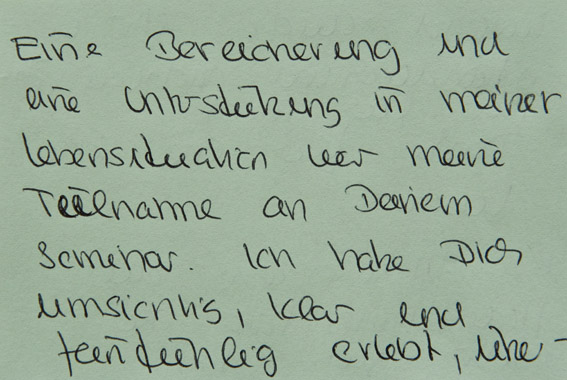 Eine Bereicherung und
eine Unterstützung in meiner
Lebenssituation war meine
Teilnahme an Deinem
Seminar. Ich habe Dich
umsichtig, klar und
feinfühlig erlebt,